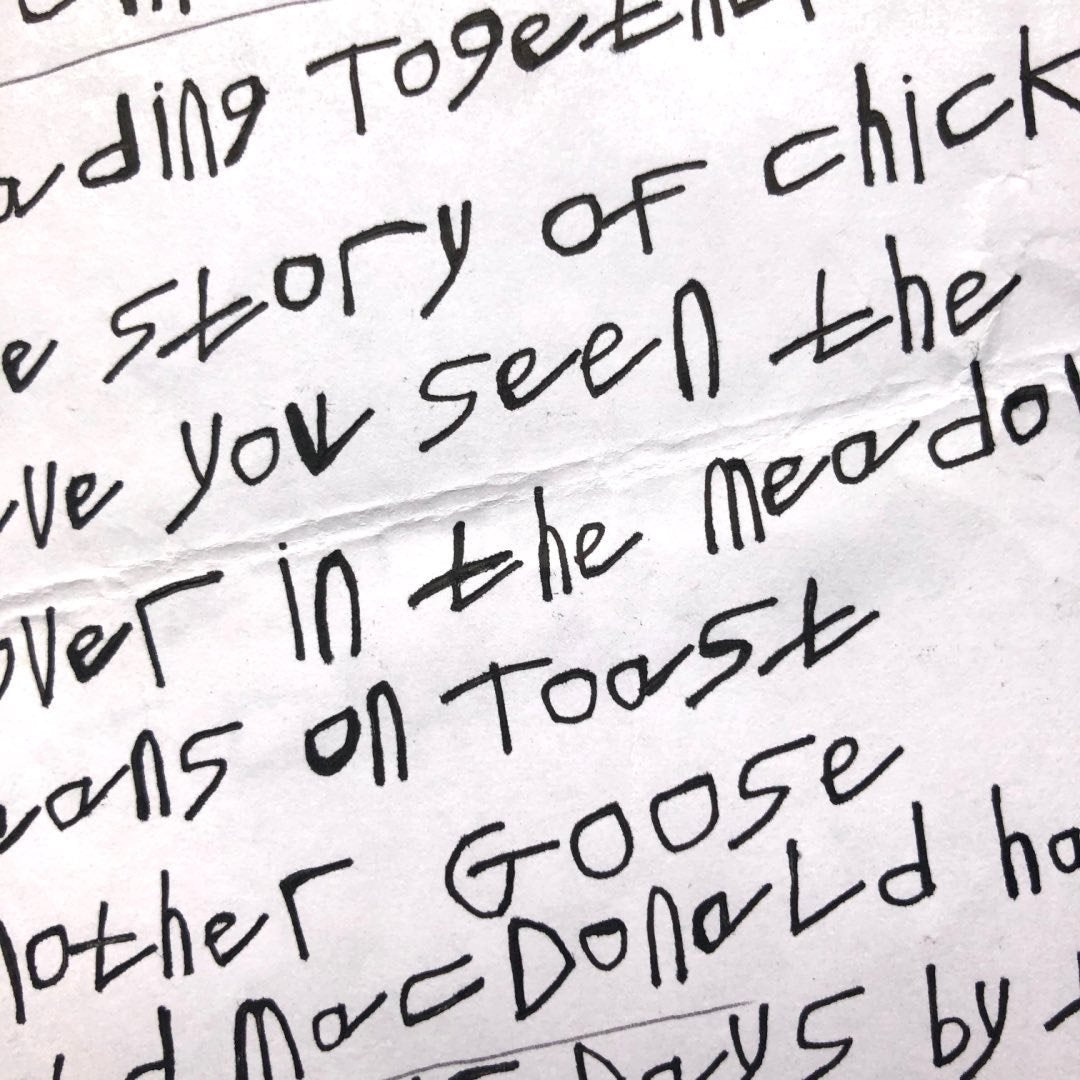 ading Together
e story of chick
ve you seen the
over in the meadow
eans on Toast
Mother Goose
d MacDonald ha
Days by